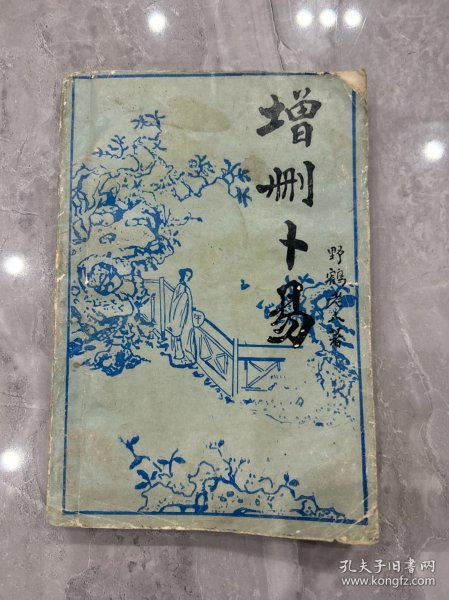 增删卜易
野鹤老人著
孔夫子旧书网
www.kongfz.com